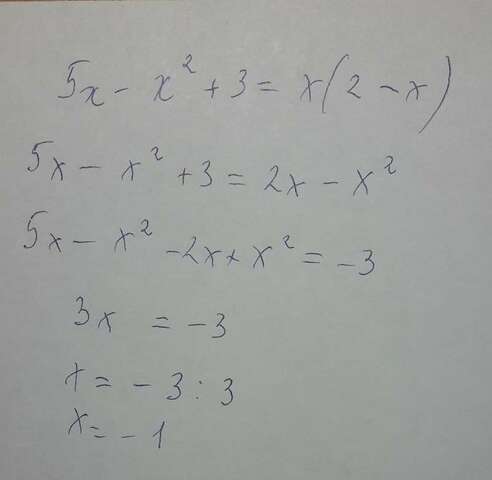 5x - x² + 3 = x(2 - x)
5x - x² + 3 = 2x - x²
5x - x² - 2x + x² = -3
3x = -3
x = -3 : 3
x = -1